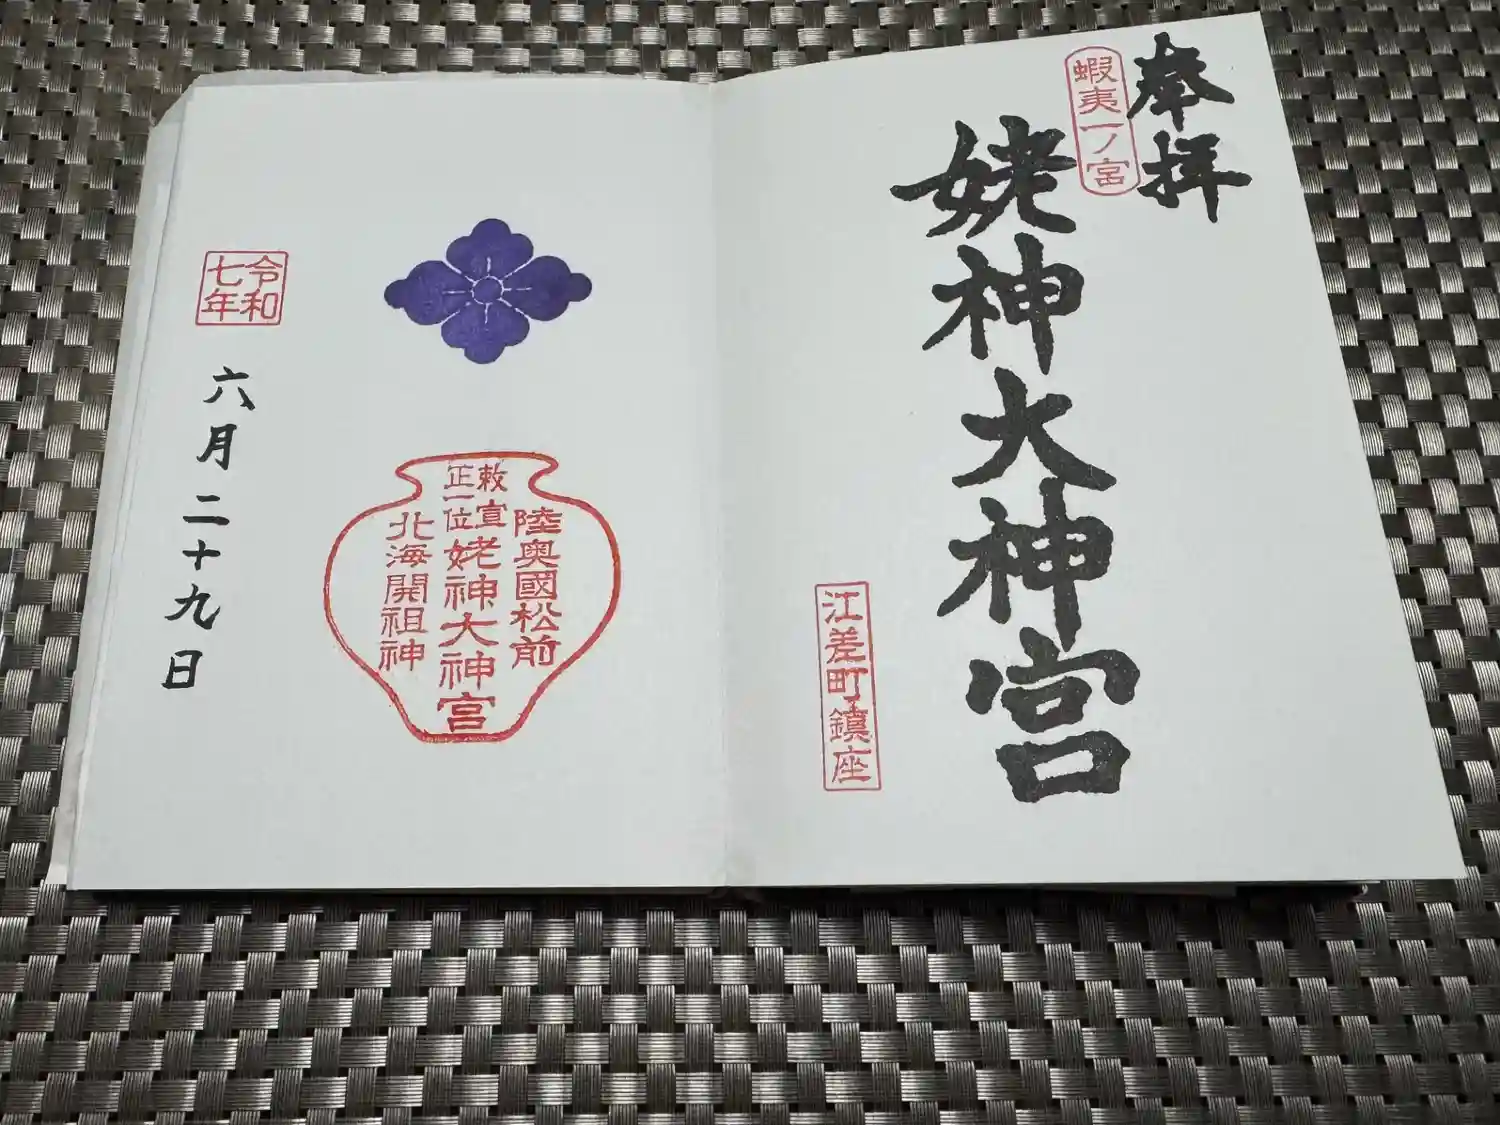 奉拝
蝦夷一ノ宮
姥神大神宮
江差町鎮座
陸奥國松前
敕宣
正一位
姥神大神宮
北海開祖神
令和
七年
六月二十九日